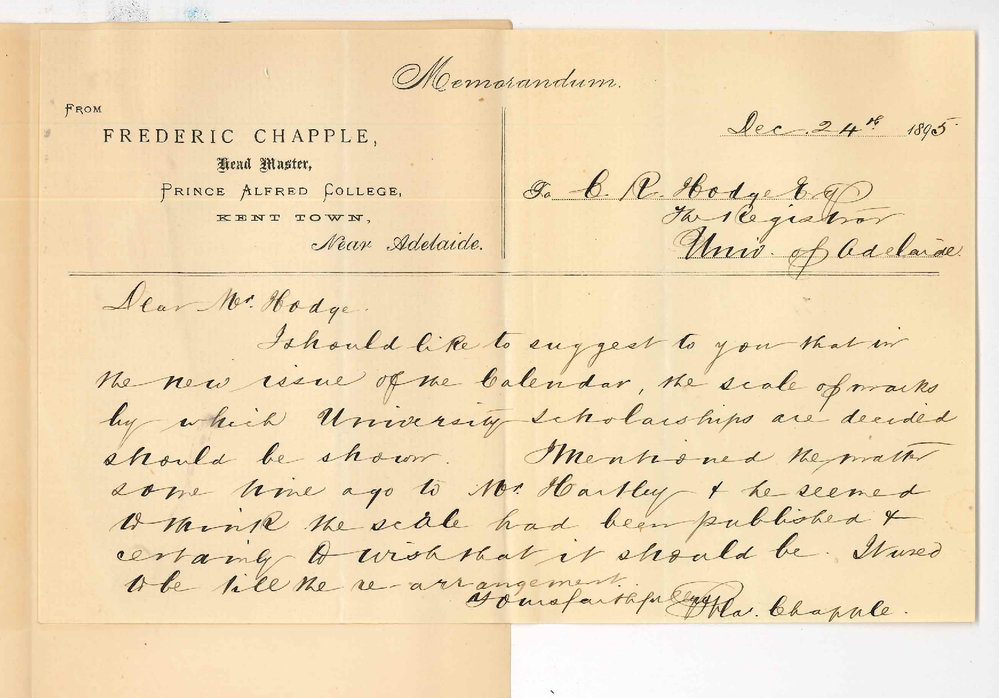 Memorandum.
FROM
FREDERIC CHAPPLE,
Head Master,
PRINCE ALFRED COLLEGE,
KENT TOWN,
Near Adelaide.
Dec. 24th 1895
To C. R. Hodge Esq
The Registrar
Univ. of Adelaide.
Dear Mr. Hodge.
I should like to suggest to you that in
the new issue of the Calendar, the scale of marks
by which University Scholarships are decided
should be shown. I mentioned the matter
some time ago to Mr. Hartley & he seemed
to think the scale had been published &
certainly to wish that it should be. It used
to be till the re-arrangement.
Yours faithfully
Chapple.